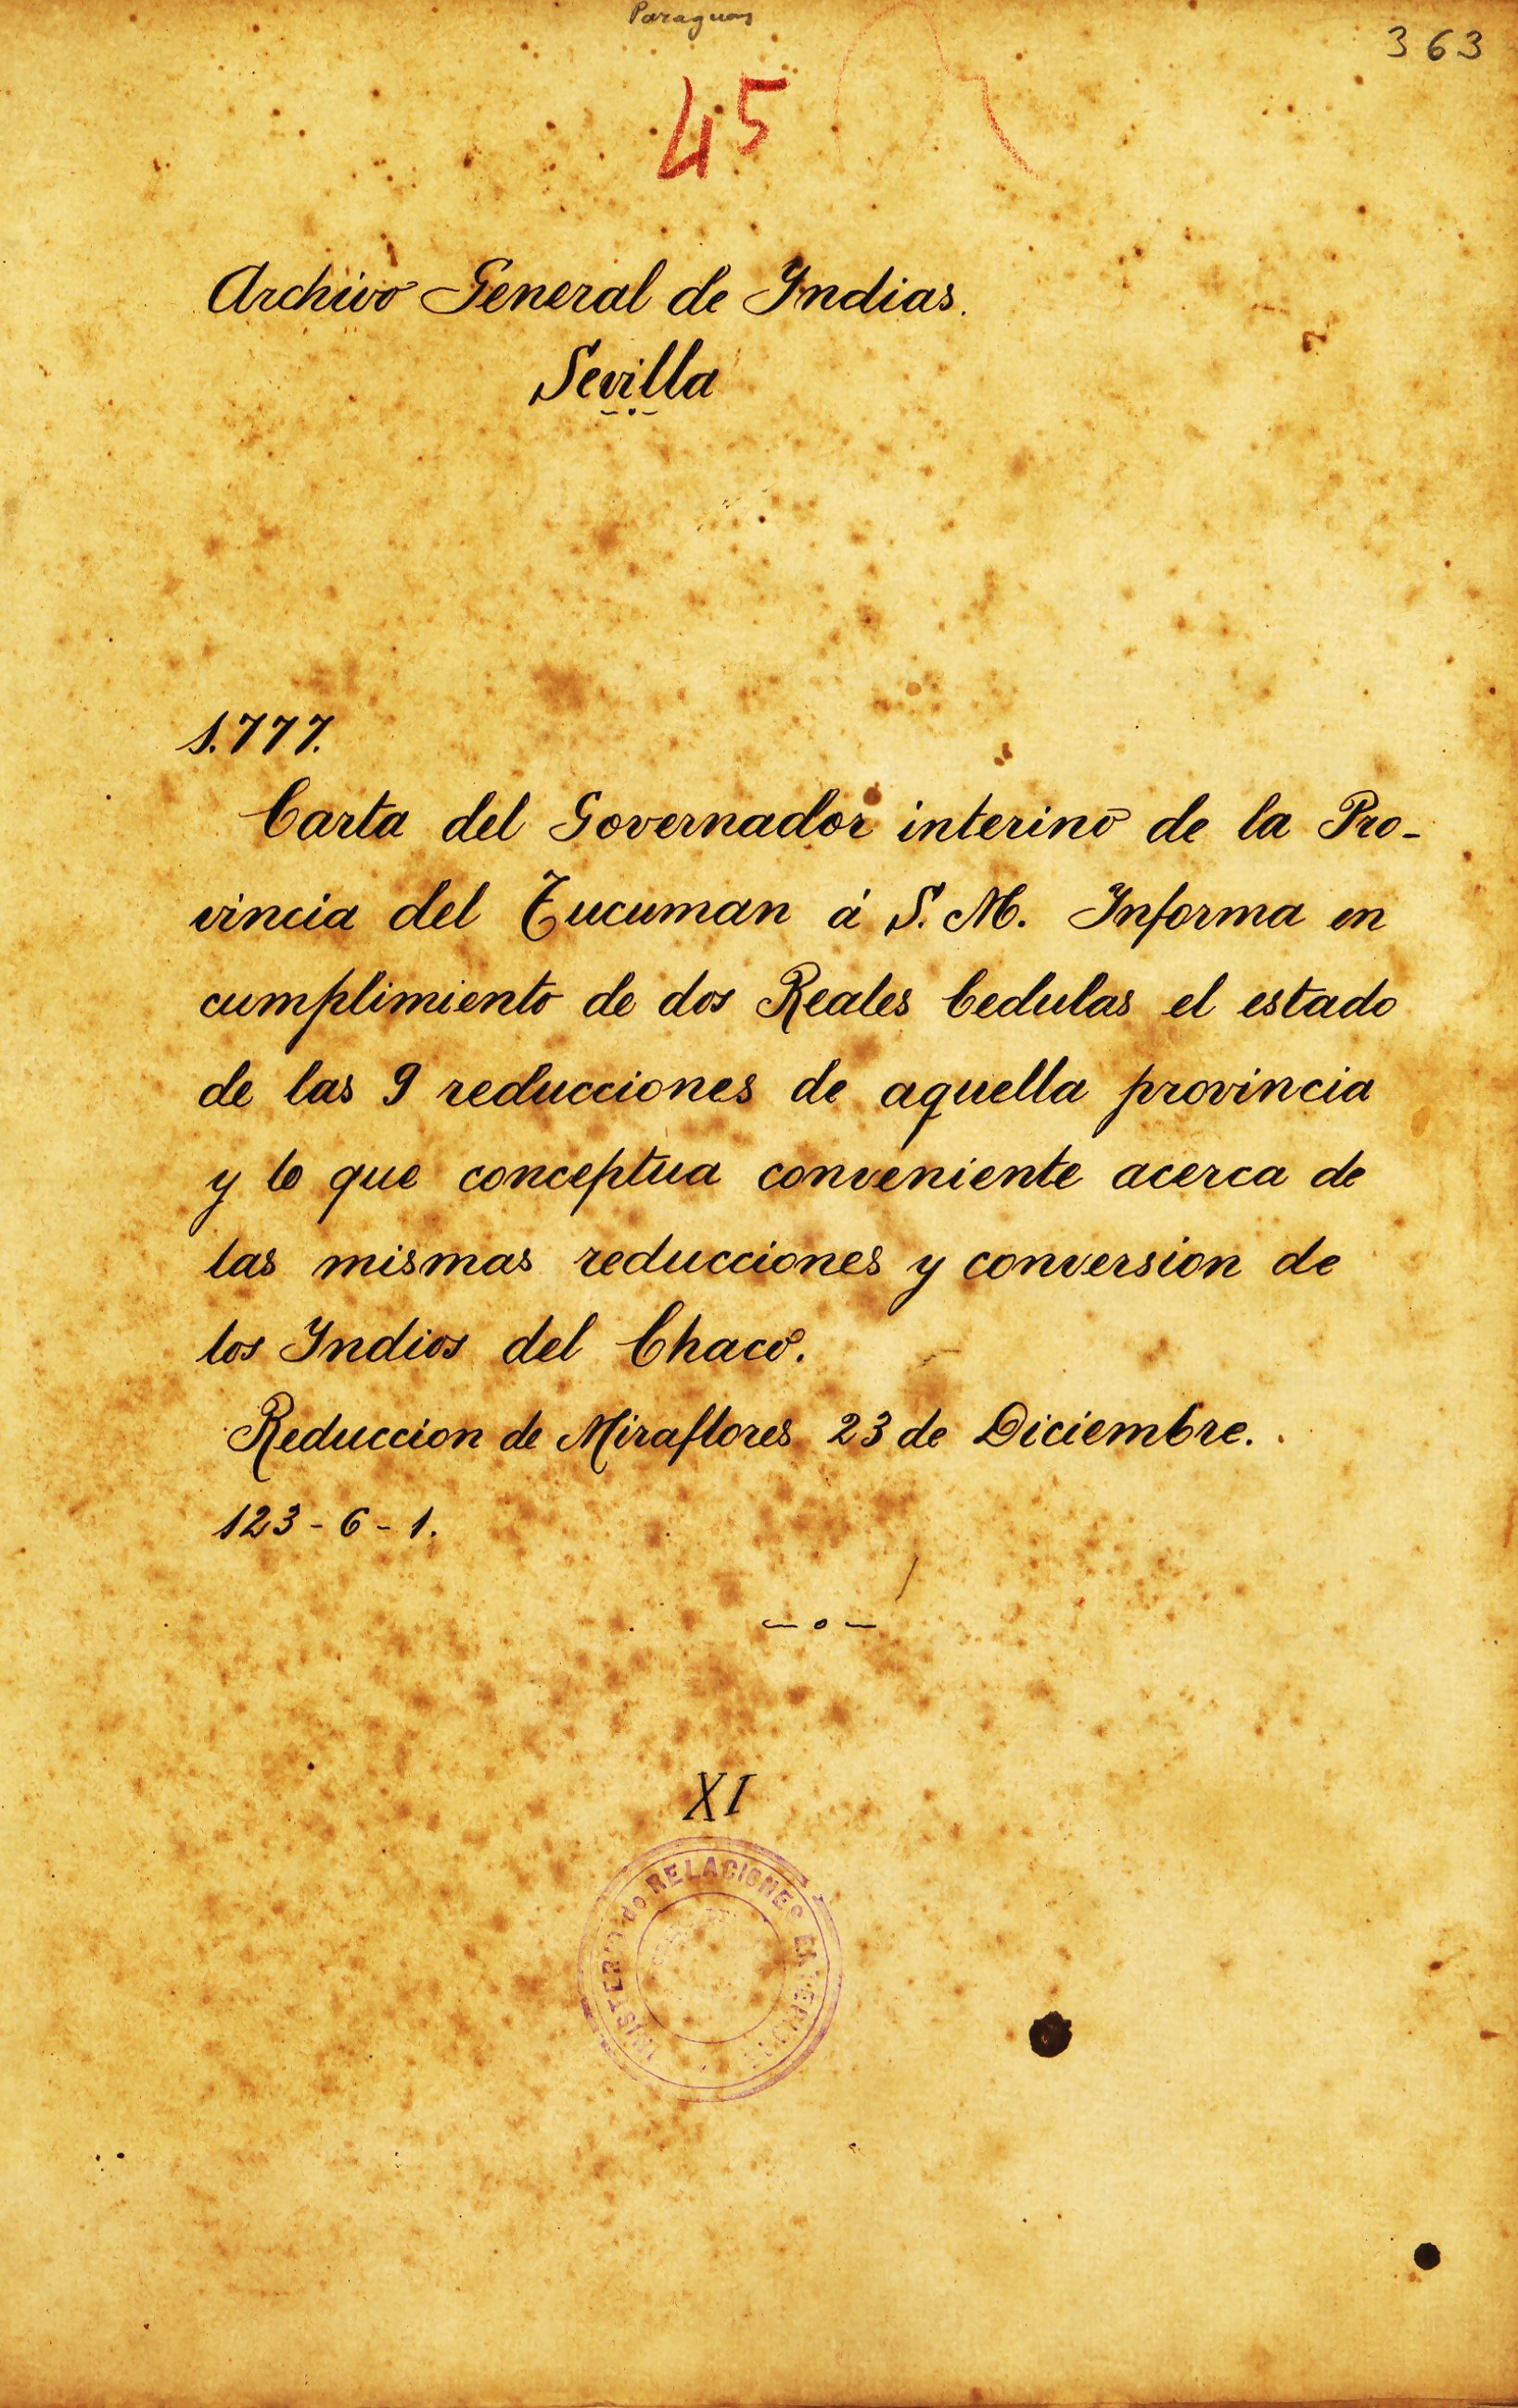 Paraguay
363
45
Archivo General de Yndias.
Sevilla
1.777.
Carta del Governador interino de la Pro-
vincia del Tucuman á S. M. Ynforma en
cumplimiento de dos Reales Cedulas el estado
de las 9 reducciones de aquella provincia
y lo que conceptua conveniente acerca de
las mismas reducciones y conversion de
los Yndios del Chaco.
Reduccion de Miraflores 23 de Diciembre.
123-6-1.
XI
MINISTERIO de RELACIONES EXTERIORES